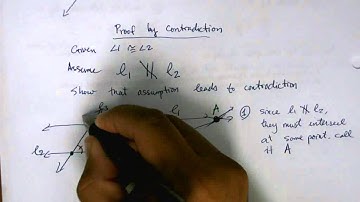 Proof by Contradiction
Given ∠1 ≅ ∠2
Assume ℓ₁ ∦ ℓ₂
Show that assumption leads to contradiction
ℓ₁ A
ℓ₂
① since ℓ₁ ∦ ℓ₂,
they must intersect
at some point. call
it A